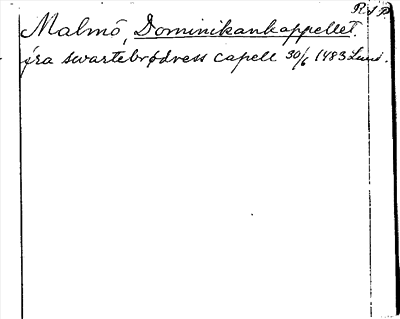 R S P
Malmö, Dominikankappellet.
fra swartebrødress capell 30/6 1483 Lund.